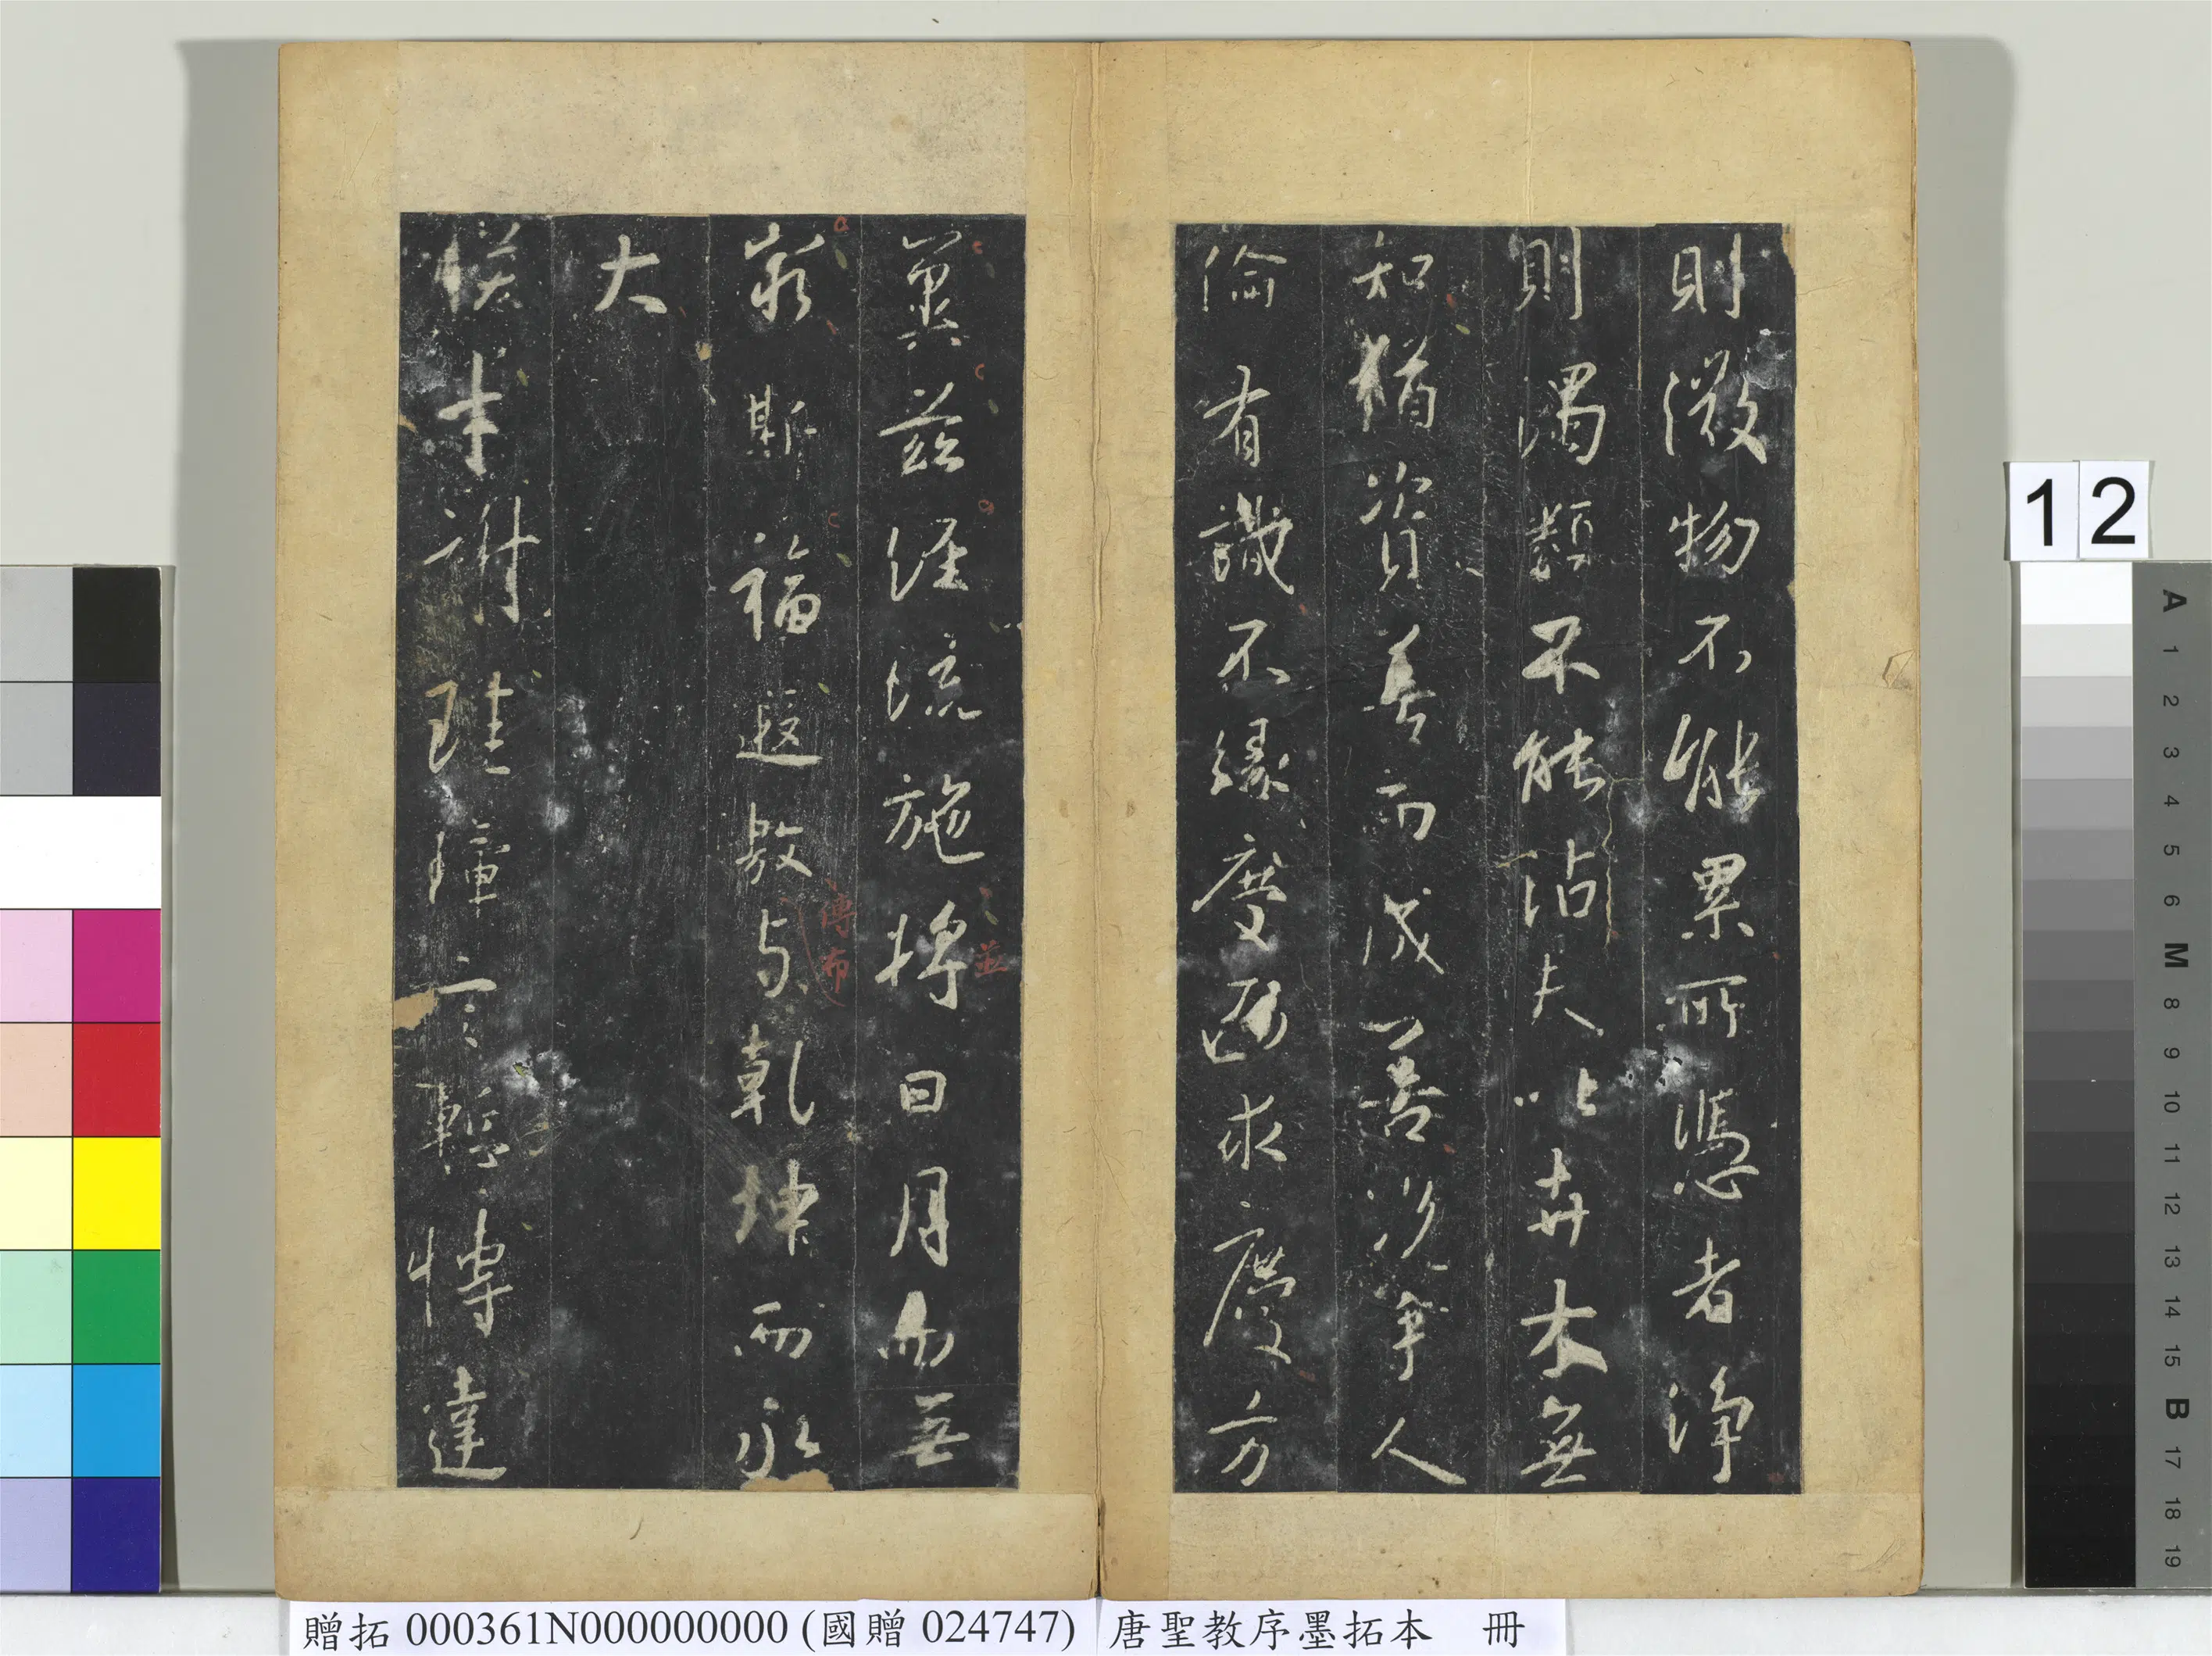 則微物不能累所憑者淨
則濁類不能沾夫以卉木無
知猶資善而成善況乎人
倫有識不緣慶而求慶方
冀茲經流施將日月而無
並
窮斯福遐敷与乾坤而永
傳布
大
朕才謝珪璋言慙博達
12
A 1 2 3 4 5 6 M 8 9 10 11 12 13 14 15 B 17 18 19
贈拓 000361N000000000 (國贈 024747) 唐聖教序墨拓本 冊